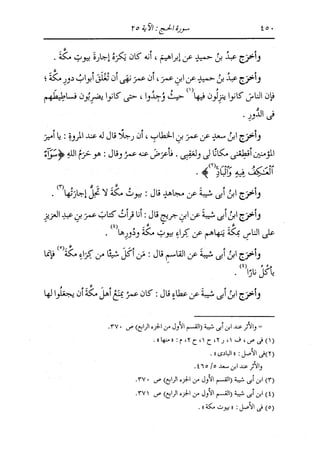 ٤٥٠ سورة الحج : الآية ٢٥
وأخرَج عبدُ بنُ حميدٍ عن إبراهيمَ ، أنه كان يَكرَهُ إجارةَ بيوتِ مكةَ .
وأخرَج عبدُ بنُ حميدٍ عن ابنِ عمرَ ، أن عمرَ نهَى أن تُغلَقَ أبوابُ دورِ مكةَ ؛
فإن الناسَ كانوا ينزِلون فيها(١) حيثُ وُجِدوا ، حتى كانوا يضرِبون فساطيطَهم
فى الدُّورِ .
وأخرَج ابنُ سعدٍ عن عمرَ بنِ الخطابِ ، أن رجلًا قال له عندَ المروةِ : يا أميرَ
المؤمنين أَقطِعْنى مكانًا لى ولعَقِبى . فأعرَض عنه عمرُ وقال : هو حَرَمُ اللهِ ﴿سَوَآءً
ٱلْعَٰكِفُ فِيهِ وَٱلْبَادِ(٢)﴾ .
وأخرَج ابنُ أبى شيبةَ عن مجاهدٍ قال : بيوتُ مكةَ لا تَحِلُّ إجارتُها(٣) .
وأخرَج ابنُ أبى شيبةَ عن ابنِ جريجٍ قال : أنا قرأتُ كتابَ عمرَ بنِ عبدِ العزيزِ
على الناسِ بمكةَ ينهاهم عن كِراءِ بيوتِ مكةَ ودُورِها(٤) .
وأخرَج ابنُ أبى شيبةَ عن القاسمِ قال : مَن أكَل شيئًا من كِراءِ مكةَ(٥) فإنما
يأكُلُ نارًا(٤) .
وأخرَج ابنُ أبى شيبةَ عن عطاءٍ قال : كان عمرُ يمنَعُ أهلَ مكةَ أن يجعَلوا لها
= والأثر عند ابن أبى شيبة (القسم الأول من الجزء الرابع) ص ٣٧٠.
(١) فى ص ، ف ١، ر ٢، ح ١، ح ٢، م : «منها» .
(٢) فى الأصل : «البادى» .
والأثر عند ابن سعد ٥/ ٤٦٥.
(٣) ابن أبى شيبة (القسم الأول من الجزء الرابع) ص ٣٧٠.
(٤) ابن أبى شيبة (القسم الأول من الجزء الرابع) ص ٣٧١.
(٥) فى الأصل : «بيوت مكة» .